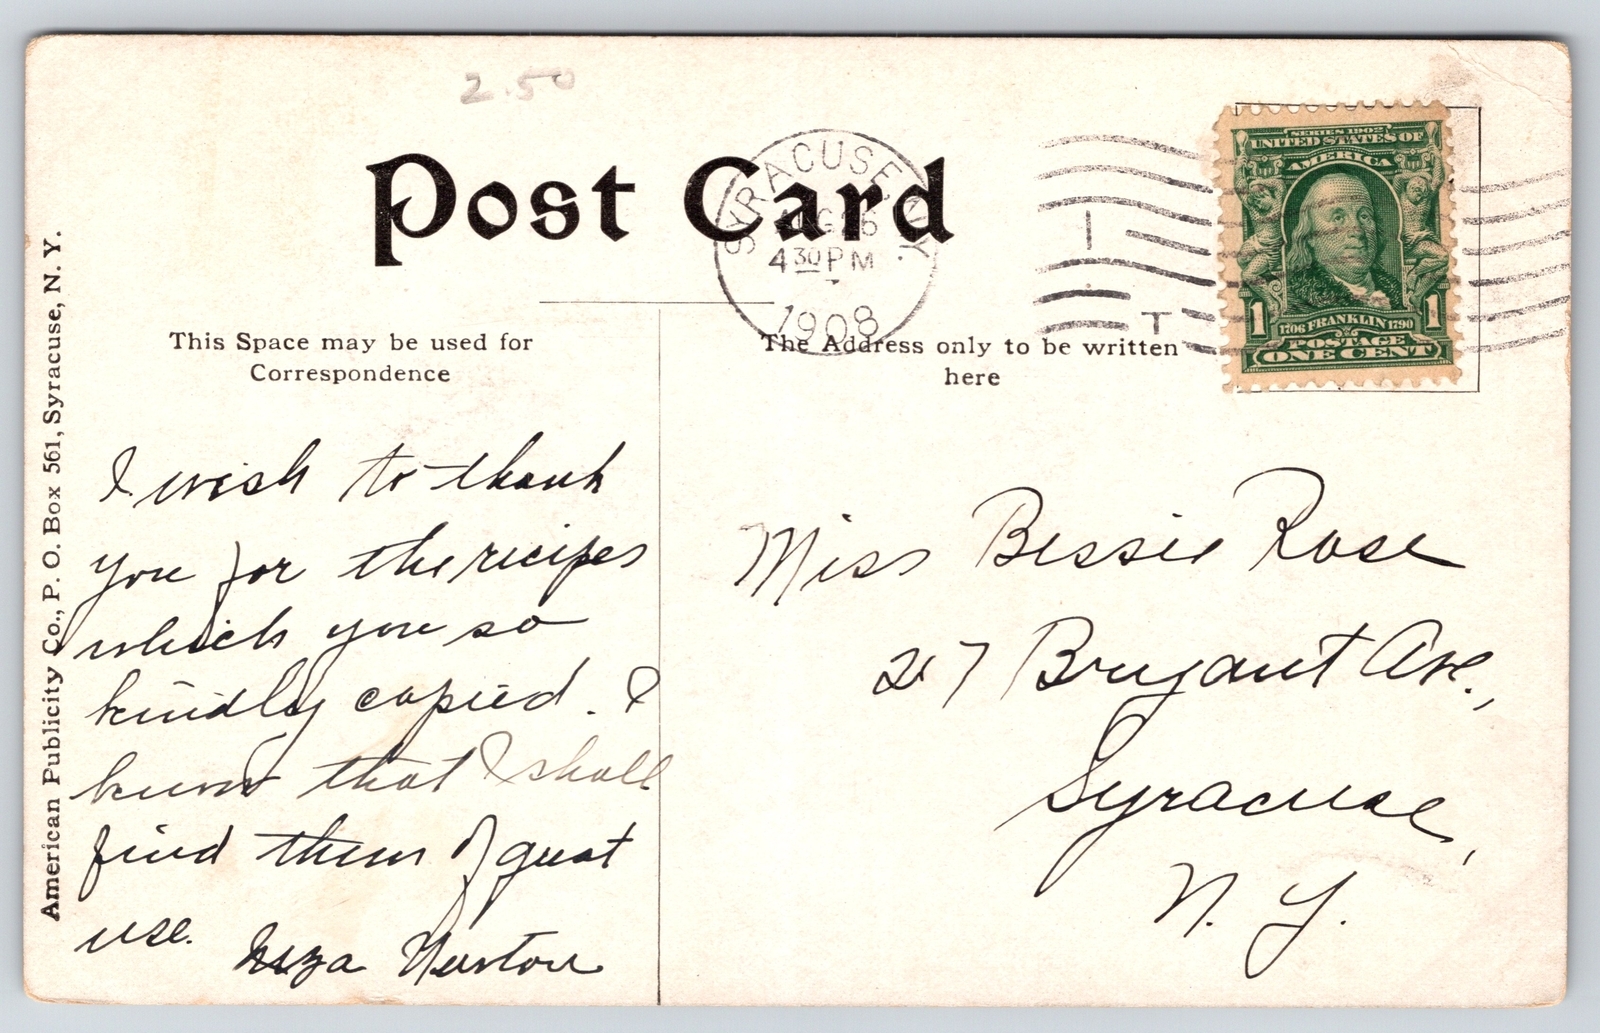 2.50
Post Card
SYRACUSE, N.Y.
AUG 6
4 30 PM
1908
T
SERIES 1902
UNITED STATES OF
AMERICA
1 1
1706 FRANKLIN 1790
POSTAGE
ONE CENT
This Space may be used for
Correspondence
The Address only to be written
here
American Publicity Co., P. O. Box 561, Syracuse, N. Y.
I wish to thank
you for the recipes
which you so
kindly copied. I
know that I shall
find them of great
use.
Newton
Miss Bessie Rose
217 Bryant Ave.,
Syracuse,
N. Y.